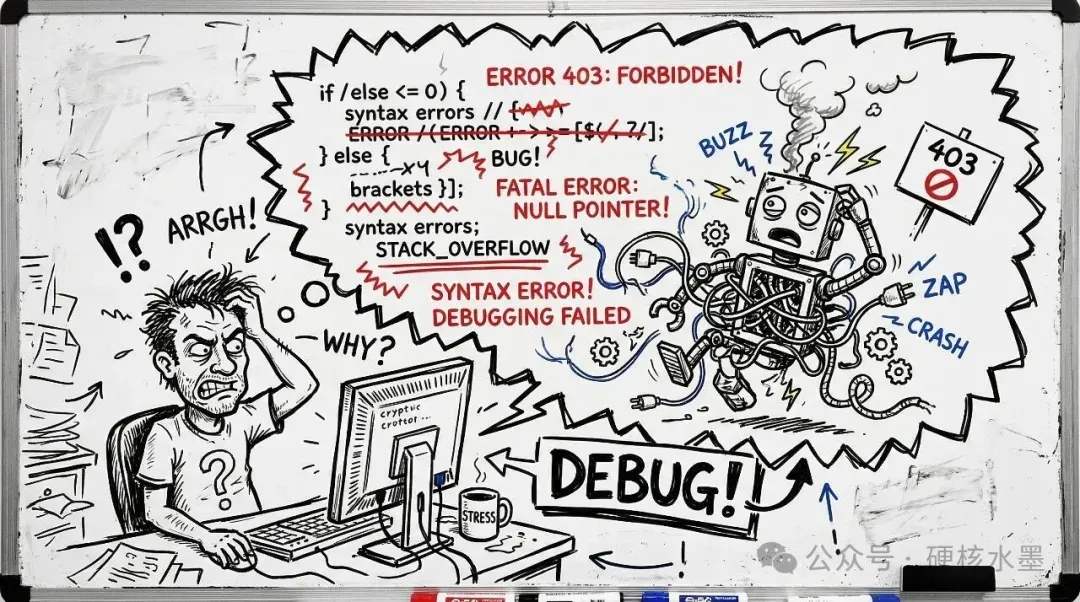 ERROR 403: FORBIDDEN!
if /else <= 0) {
syntax errors // {
ERROR /(ERROR + > > = [$(/. 7/];
} else {
x4
BUG!
brackets }];
FATAL ERROR:
NULL POINTER!
}
syntax errors;
STACK_OVERFLOW
SYNTAX ERROR!
DEBUGGING FAILED
BUZZ
403
ZAP
CRASH
!?
ARRGH!
WHY?
?
cryptic
STRESS
DEBUG!
!
公众号 · 硬核水墨